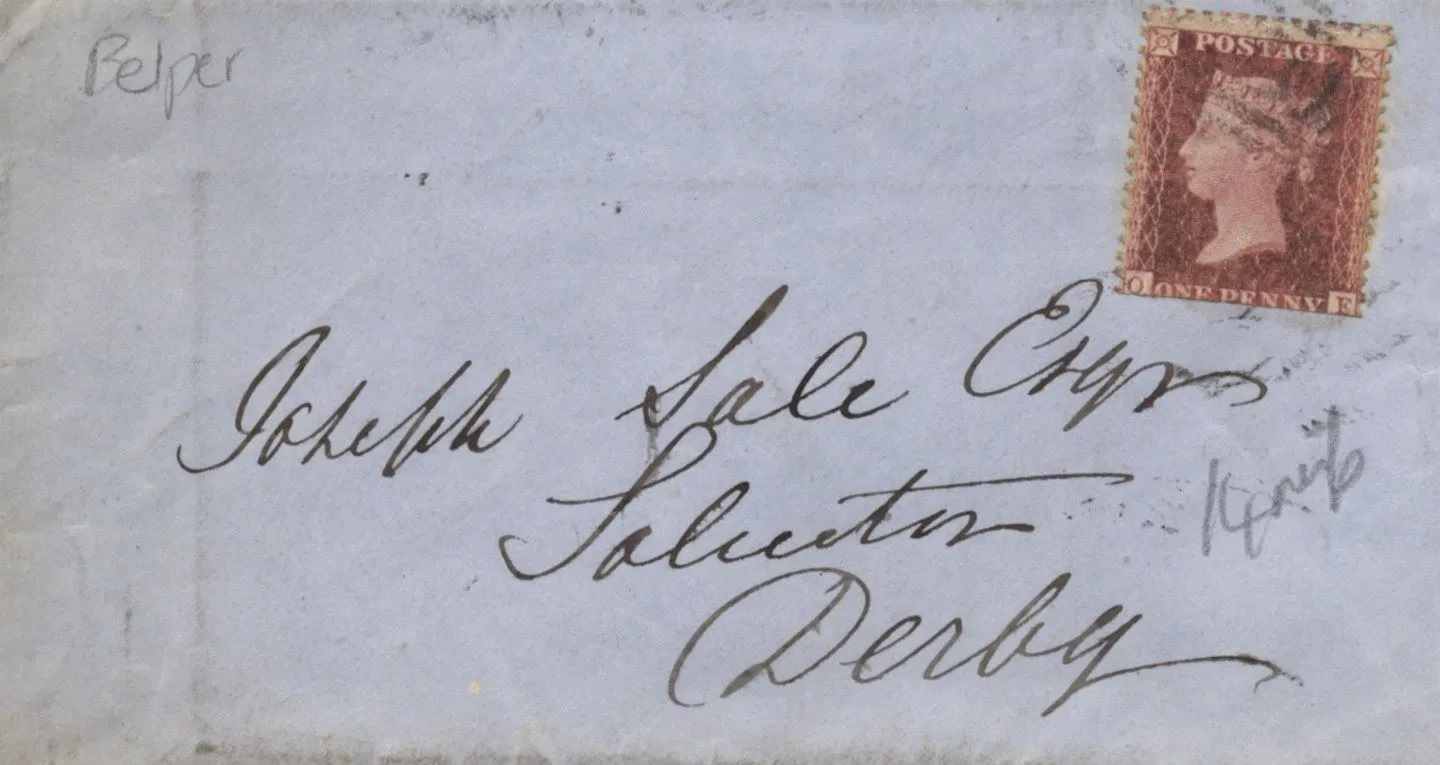 Belper
POSTAGE
O ONE PENNY E
Joseph Sale Esqr
Solicitor
Derby